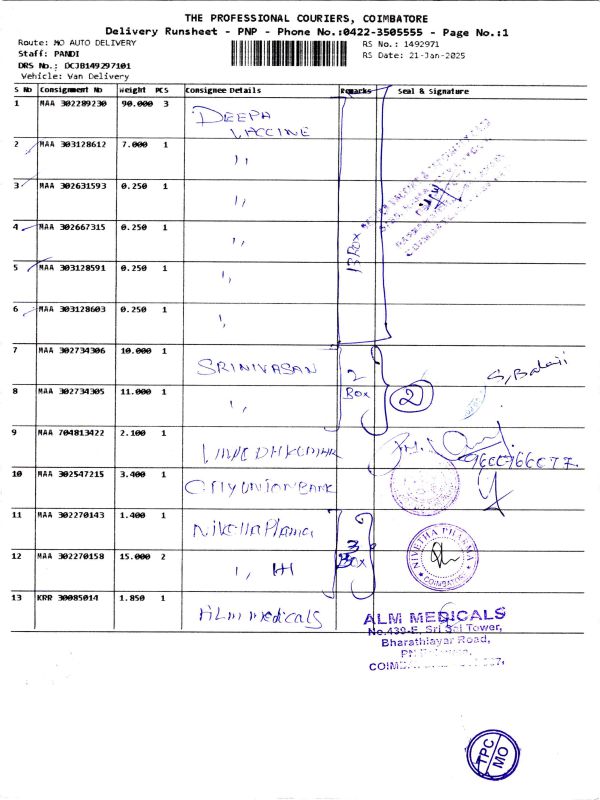 THE PROFESSIONAL COURIERS, COIMBATORE
Delivery Runsheet - PNP - Phone No.:0422-3505555 - Page No.:1
Route: MO AUTO DELIVERY
RS No.: 1492971
Staff: PANDI
RS Date: 21-Jan-2025
DRS No.; DCJB149297101
Vehicle: Van Delivery
S No Consignment No Weight PCS Consignee Details Remarks Seal & Signature
1 MAA 302289230 90.000 3 DEEPA VACCINE
2 MAA 303128612 7.000 1 ,,
3 MAA 302631593 0.250 1 ,,
4 MAA 302667315 0.250 1 ,,
5 MAA 303128591 0.250 1 ,,
6 MAA 303128603 0.250 1 ,,
13 Box
7 MAA 302734306 10.000 1 SRINIVASAN 2 Box
8 MAA 302734305 11.000 1 ,, 2
S, Balaji
9 MAA 704813422 2.100 1
10 MAA 302547215 3.400 1 City UNION BANK
11 MAA 302270143 1.400 1 Nivetha Pharma
12 MAA 302270158 15.000 2 ,, 3 Box
NIVETHA PHARMA
COIMBATORE
13 KRR 30085014 1.850 1 ALM medicals
ALM MEDICALS
No.439-E, Sri Sai Tower,
Bharathiayar Road,
TPC
MO